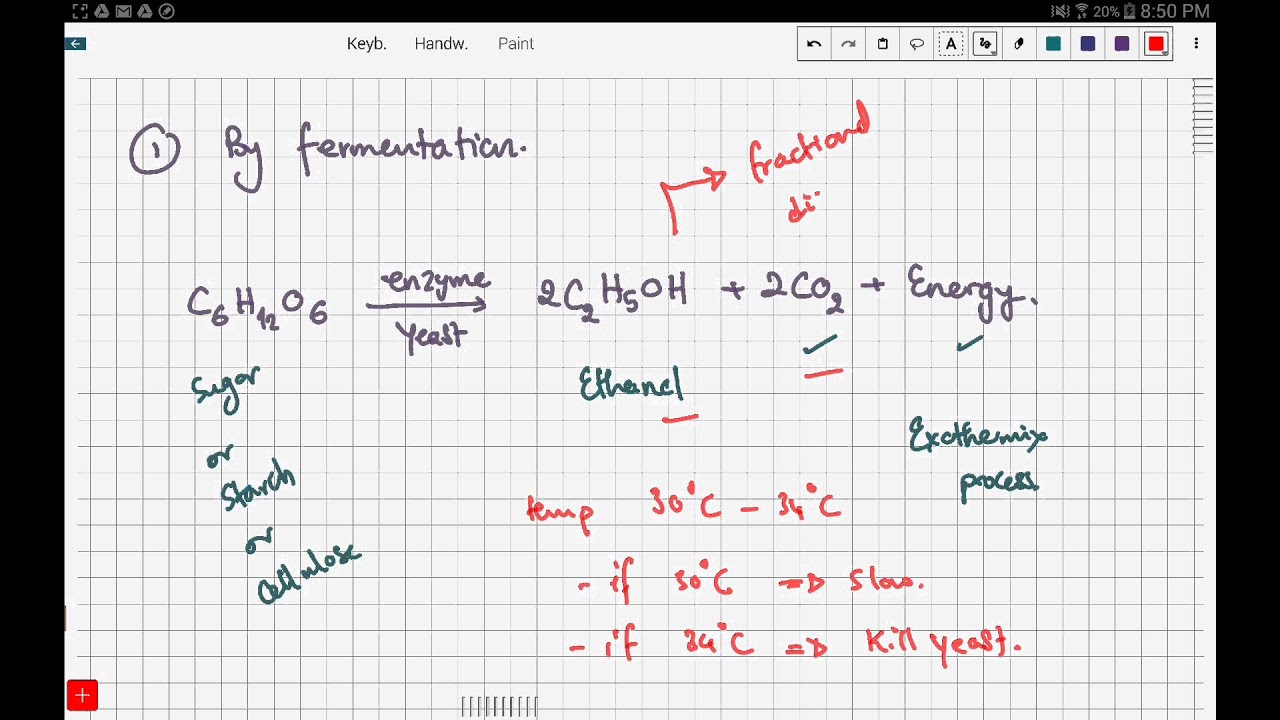 20% 8:50 PM
Keyb. Handw. Paint
A
① By fermentation.
fractional
di
C₆H₁₂O₆ enzyme yeast 2C₂H₅OH + 2CO₂ + Energy.
Sugar
or
starch
or
cellulose
Ethanol
Exothermix
process.
temp 30°C - 34°C
- if 30°C => slow.
- if 34°C => Kill yeast.